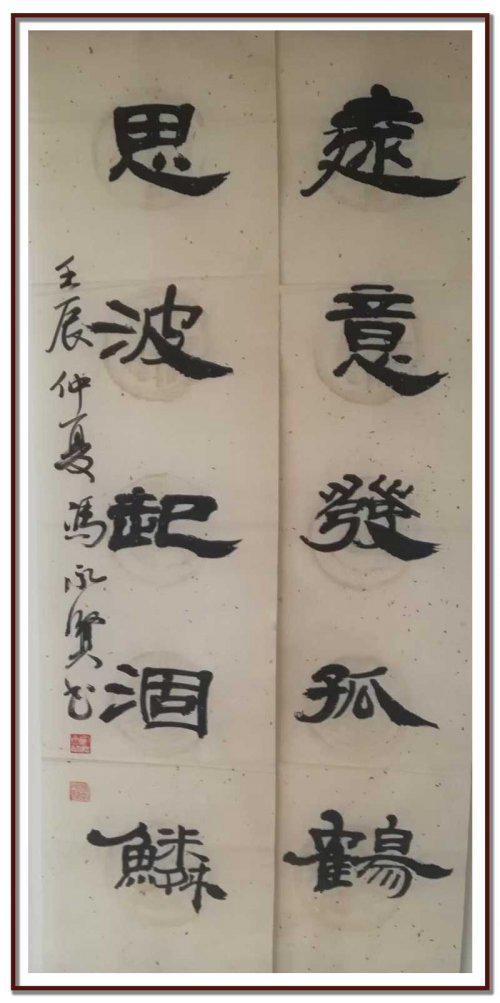 遠意發孤鶴
思波起涸鱗
壬辰仲夏馮永賢書